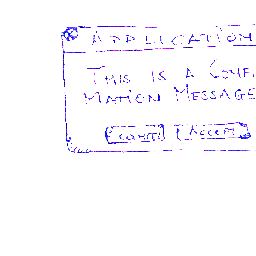 APPLICATION
THIS IS A CONF
MATION MESSAGE
CANCEL ACCEPT